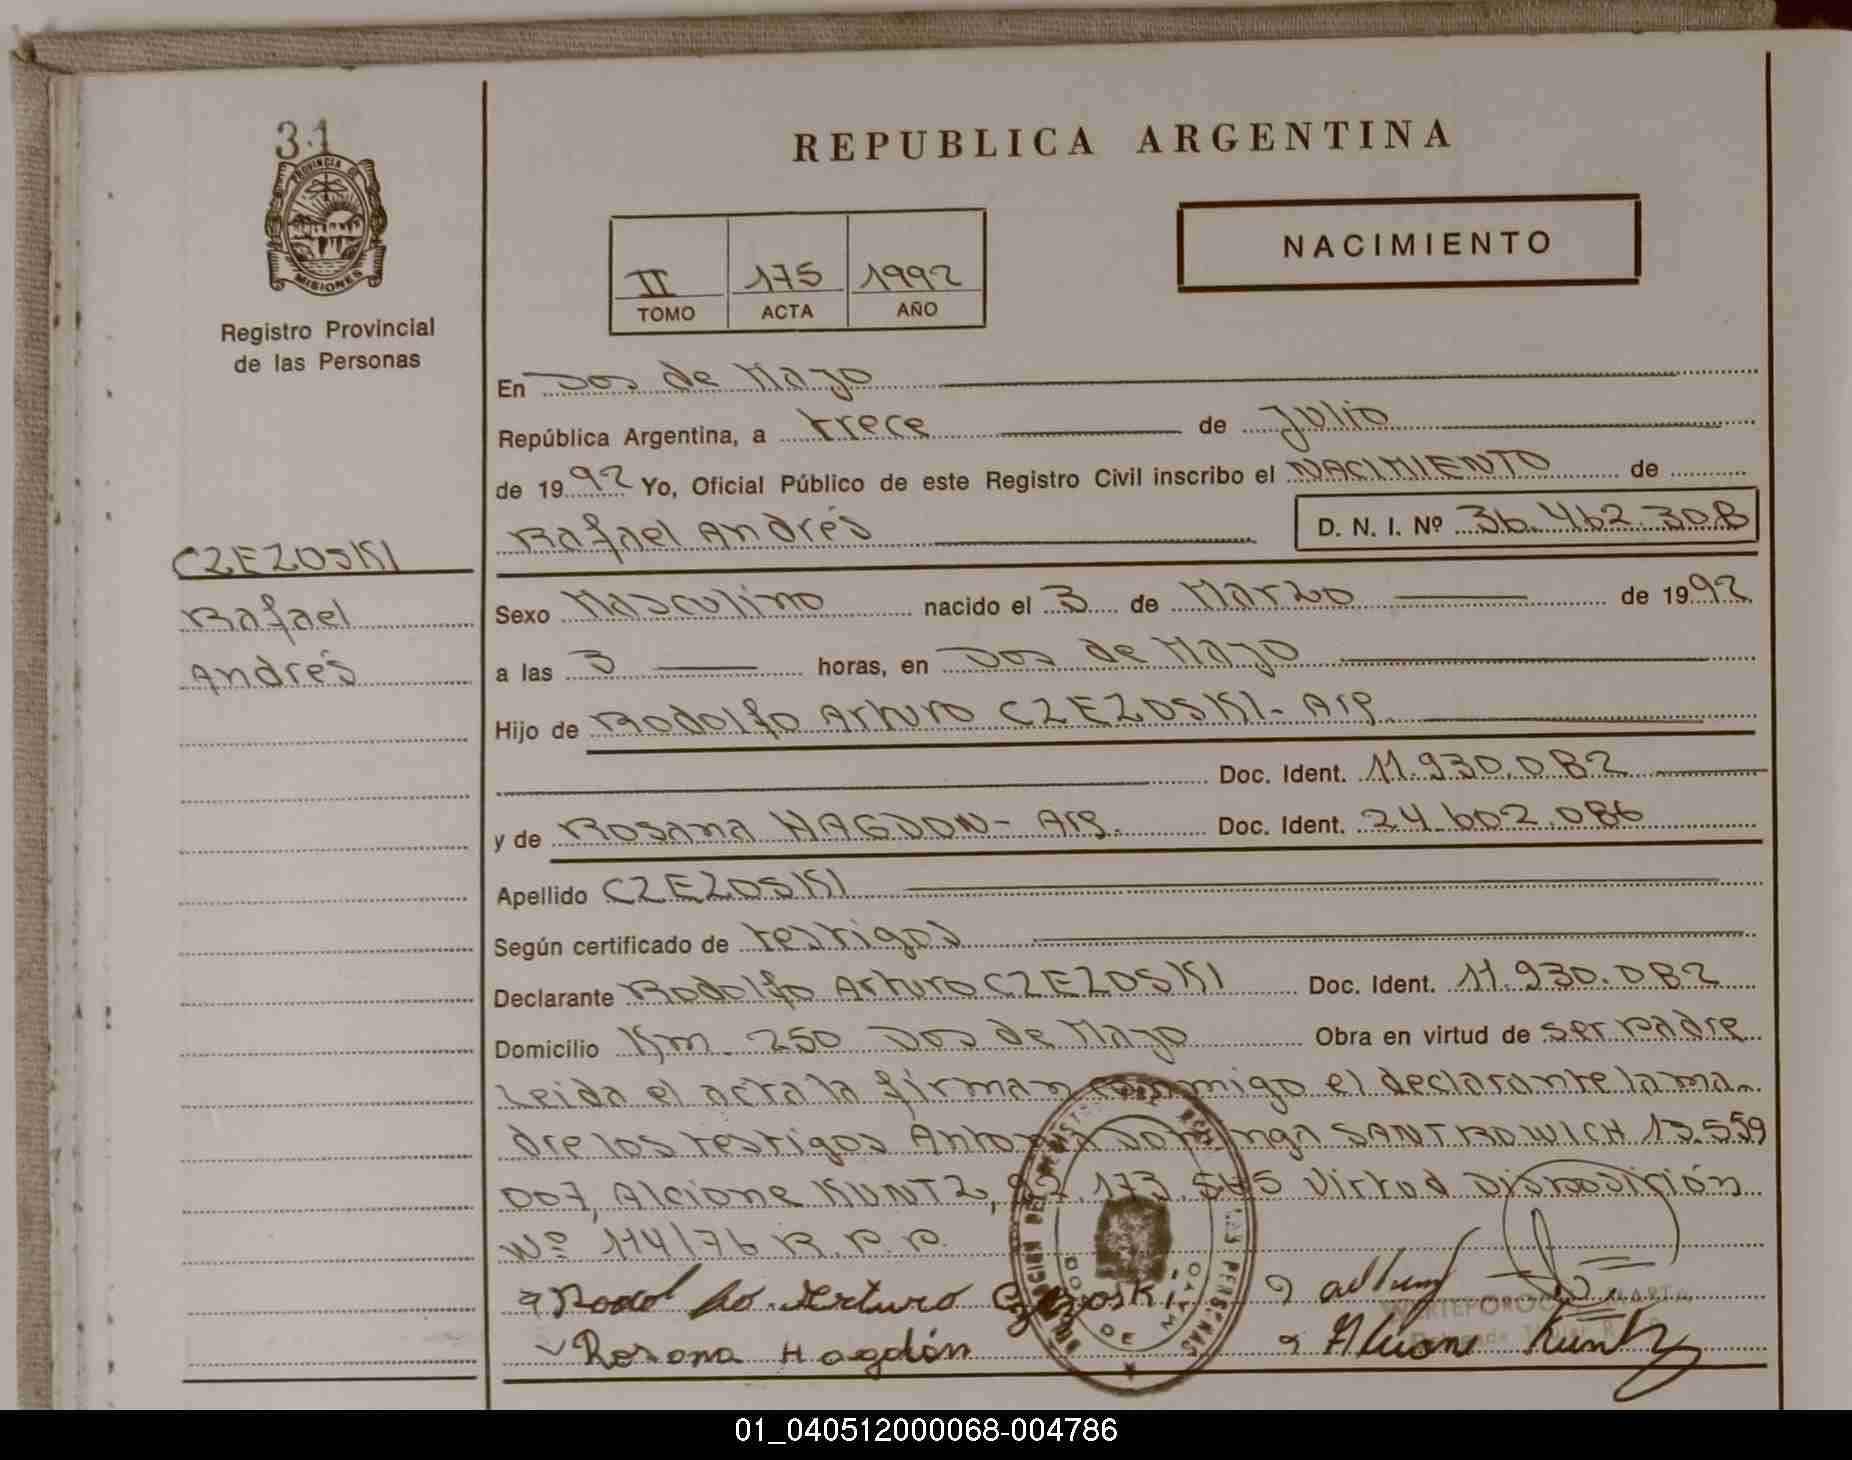 31
PROVINCIA DE
MISIONES
Registro Provincial
de las Personas
CZEZOSKI
Rafael
Andrés
REPUBLICA ARGENTINA
NACIMIENTO
II 175 1992
TOMO ACTA AÑO
En Dos de Mayo
República Argentina, a trece de Julio
de 1992 Yo, Oficial Público de este Registro Civil inscribo el NACIMIENTO de
Rafael Andrés D. N. I. Nº 36.462.308
Sexo Masculino nacido el 3 de Marzo de 1992
a las 3 horas, en Dos de Mayo
Hijo de Rodolfo Arturo CZEZOSKI- Arg.
Doc. Ident. 11.930.082
y de Rosana HAGDON- Arg. Doc. Ident. 24.602.086
Apellido CZEZOSKI
Según certificado de testigos
Declarante Rodolfo Arturo CZEZOSKI Doc. Ident. 11.930.082
Domicilio Km. 250 Dos de Mayo Obra en virtud de ser padre
Leida el acta la firman conmigo el declarante la ma-
dre los testigos SANTROWICH 13.559
007, Alcione KUNTZ, 92.173.545 Virtud Disposición
Nº 114/76 R.P.P.
Rodolfo Arturo Czezoski
Rosana Hagdón Alcione Kuntz
DOS DE MAYO
01_040512000068-004786